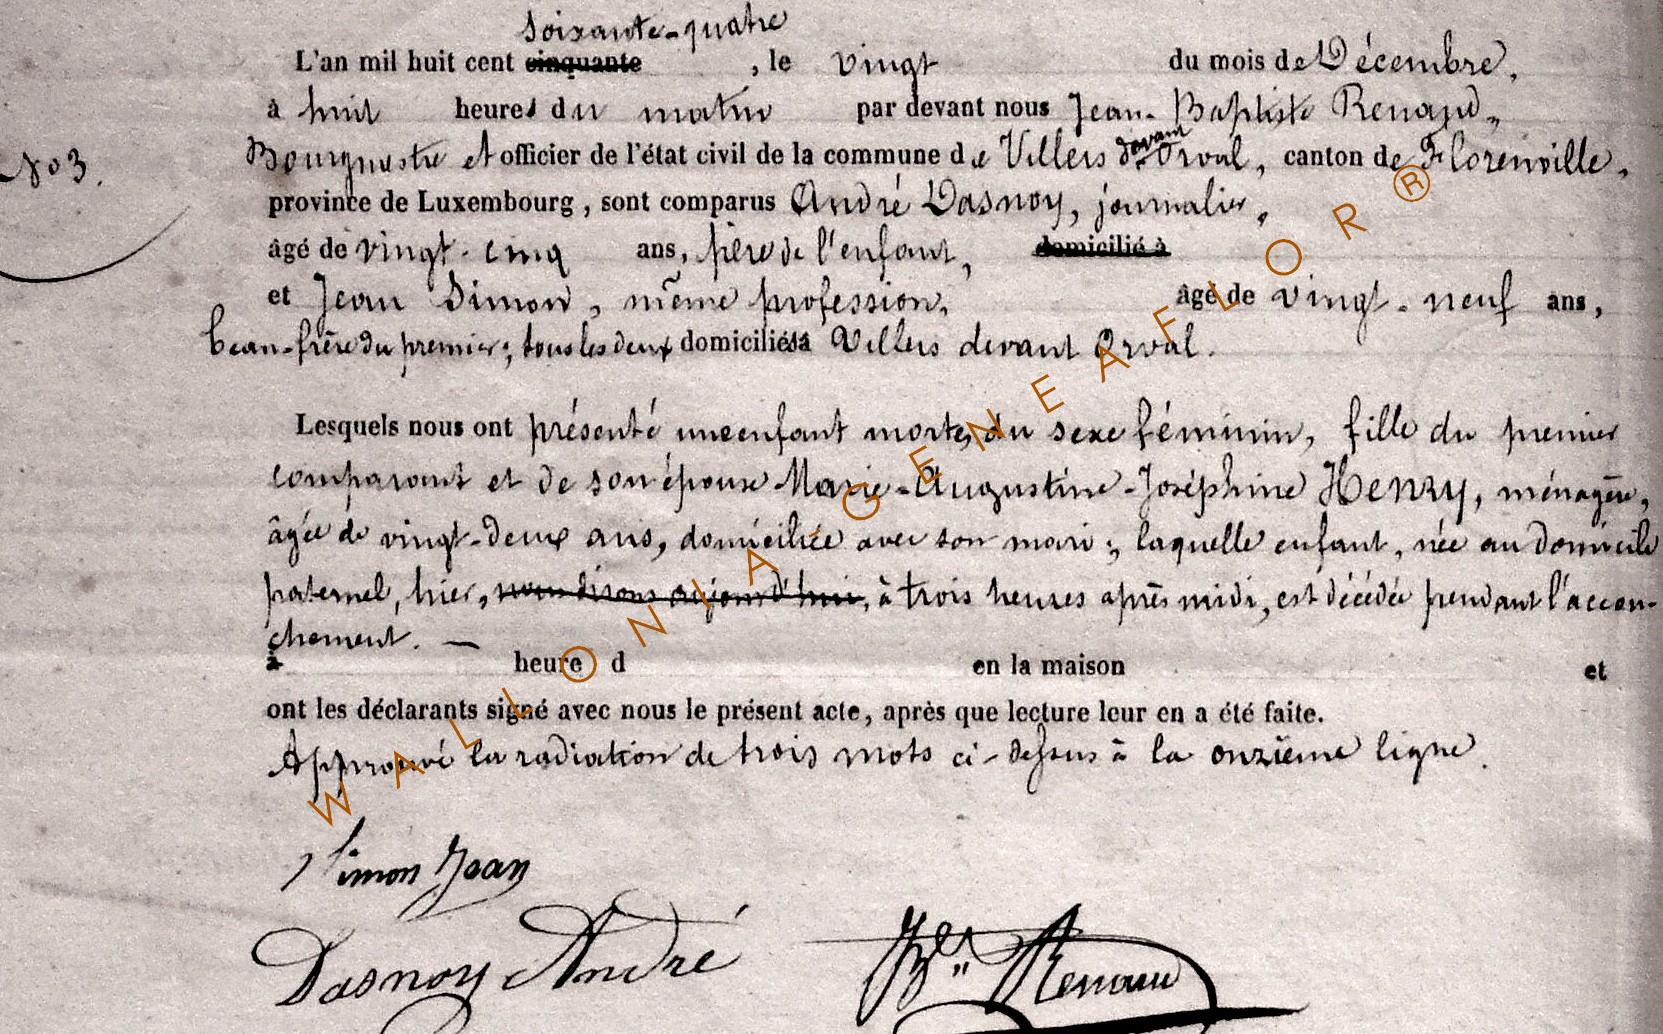 Soixante-quatre
L'an mil huit cent cinquante , le vingt du mois de Décembre,
à huit heures du matin par devant nous Jean-Baptiste Renaud,
No 3. Bourgmestre et officier de l'état civil de la commune de Villers devant Orval, canton de Florenville,
province de Luxembourg, sont comparus André Dasnoy, journalier,
âgé de vingt-cinq ans, père de l'enfant, domicilié à
et Jean Simon, même profession, âgé de vingt-neuf ans,
beau-frère du premier; tous les deux domiciliés à Villers devant Orval.
Lesquels nous ont présenté une enfant morte, du sexe féminin, fille du premier
comparant et de son épouse Marie-Augustine-Joséphine Henry, ménagère,
âgée de vingt-deux ans, domiciliée avec son mari; laquelle enfant, née au domicile
paternel, hier, nous disons aujourd'hui, à trois heures après midi, est décédée pendant l'accou-
chement. —
à heure d en la maison et
ont les déclarants signé avec nous le présent acte, après que lecture leur en a été faite.
Approuvé la radiation de trois mots ci-dessus à la onzième ligne.
Simon Jean
Dasnoy André Renaud
WALLONIA-GENEAFLOR®